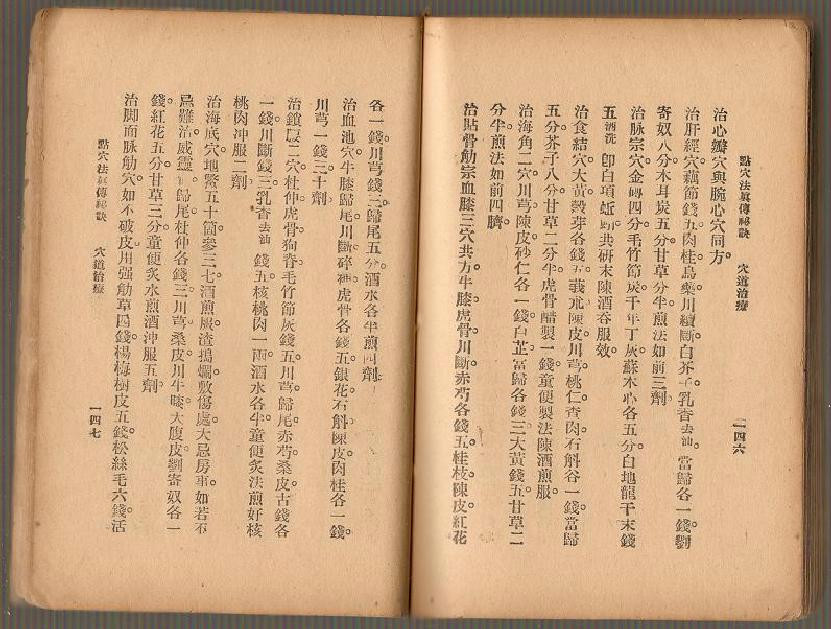 點穴法眞傳秘訣　穴道治療
一四六
治心瓣穴與腕心穴同方。
治肝經穴藕節錢五肉桂烏藥川續斷白芥子乳香去油當歸各一錢劉
寄奴八分木耳炭五分甘草分半煎法如前三劑
治脉宗穴金磚四分毛竹節炭千年丁灰蘇木心各五分白地龍干末錢
五酒洗卽白項蚯蚓共研末陳酒吞服效。
治食結穴大黃穀芽各錢五莪朮陳皮川芎桃仁查肉石斛谷一錢當歸
五分芥子八分甘草二分半虎骨醋製一錢童便製法陳酒煎服。
治海角二穴川芎陳皮砂仁各一錢白芷當歸各錢三大黃錢五甘草二
分半煎法如前四臍
治貼骨觔宗血膝三穴共方牛膝虎骨川斷赤芍各錢五桂枝陳皮紅花
各一錢川芎錢三歸尾五分酒水各半煎四劑
治血池穴牛膝歸尾川斷碎補虎骨各錢五銀花石斛陳皮肉桂各一錢
川芎一錢三十劑
治鎖二穴杜仲虎骨狗脊毛竹節灰錢五川芎歸尾赤芍桑皮古錢各
一錢川斷錢三乳香去油錢五核桃肉一兩酒水各半童便炙法煎好核
桃肉冲服二劑
治海底穴地鱉五十箇參三七酒煎服渣搗爛敷傷處大忌房事如若不
愈難治威靈歸尾杜仲各錢三川芎桑皮川牛膝大腹皮劉寄奴各一
錢紅花五分甘草三分童便炙水煎酒沖服五劑
治脚面脉觔穴如不破皮用强觔草四錢楊梅樹皮五錢松絲毛六錢活
點穴法眞傳秘訣　穴道治療
一四七